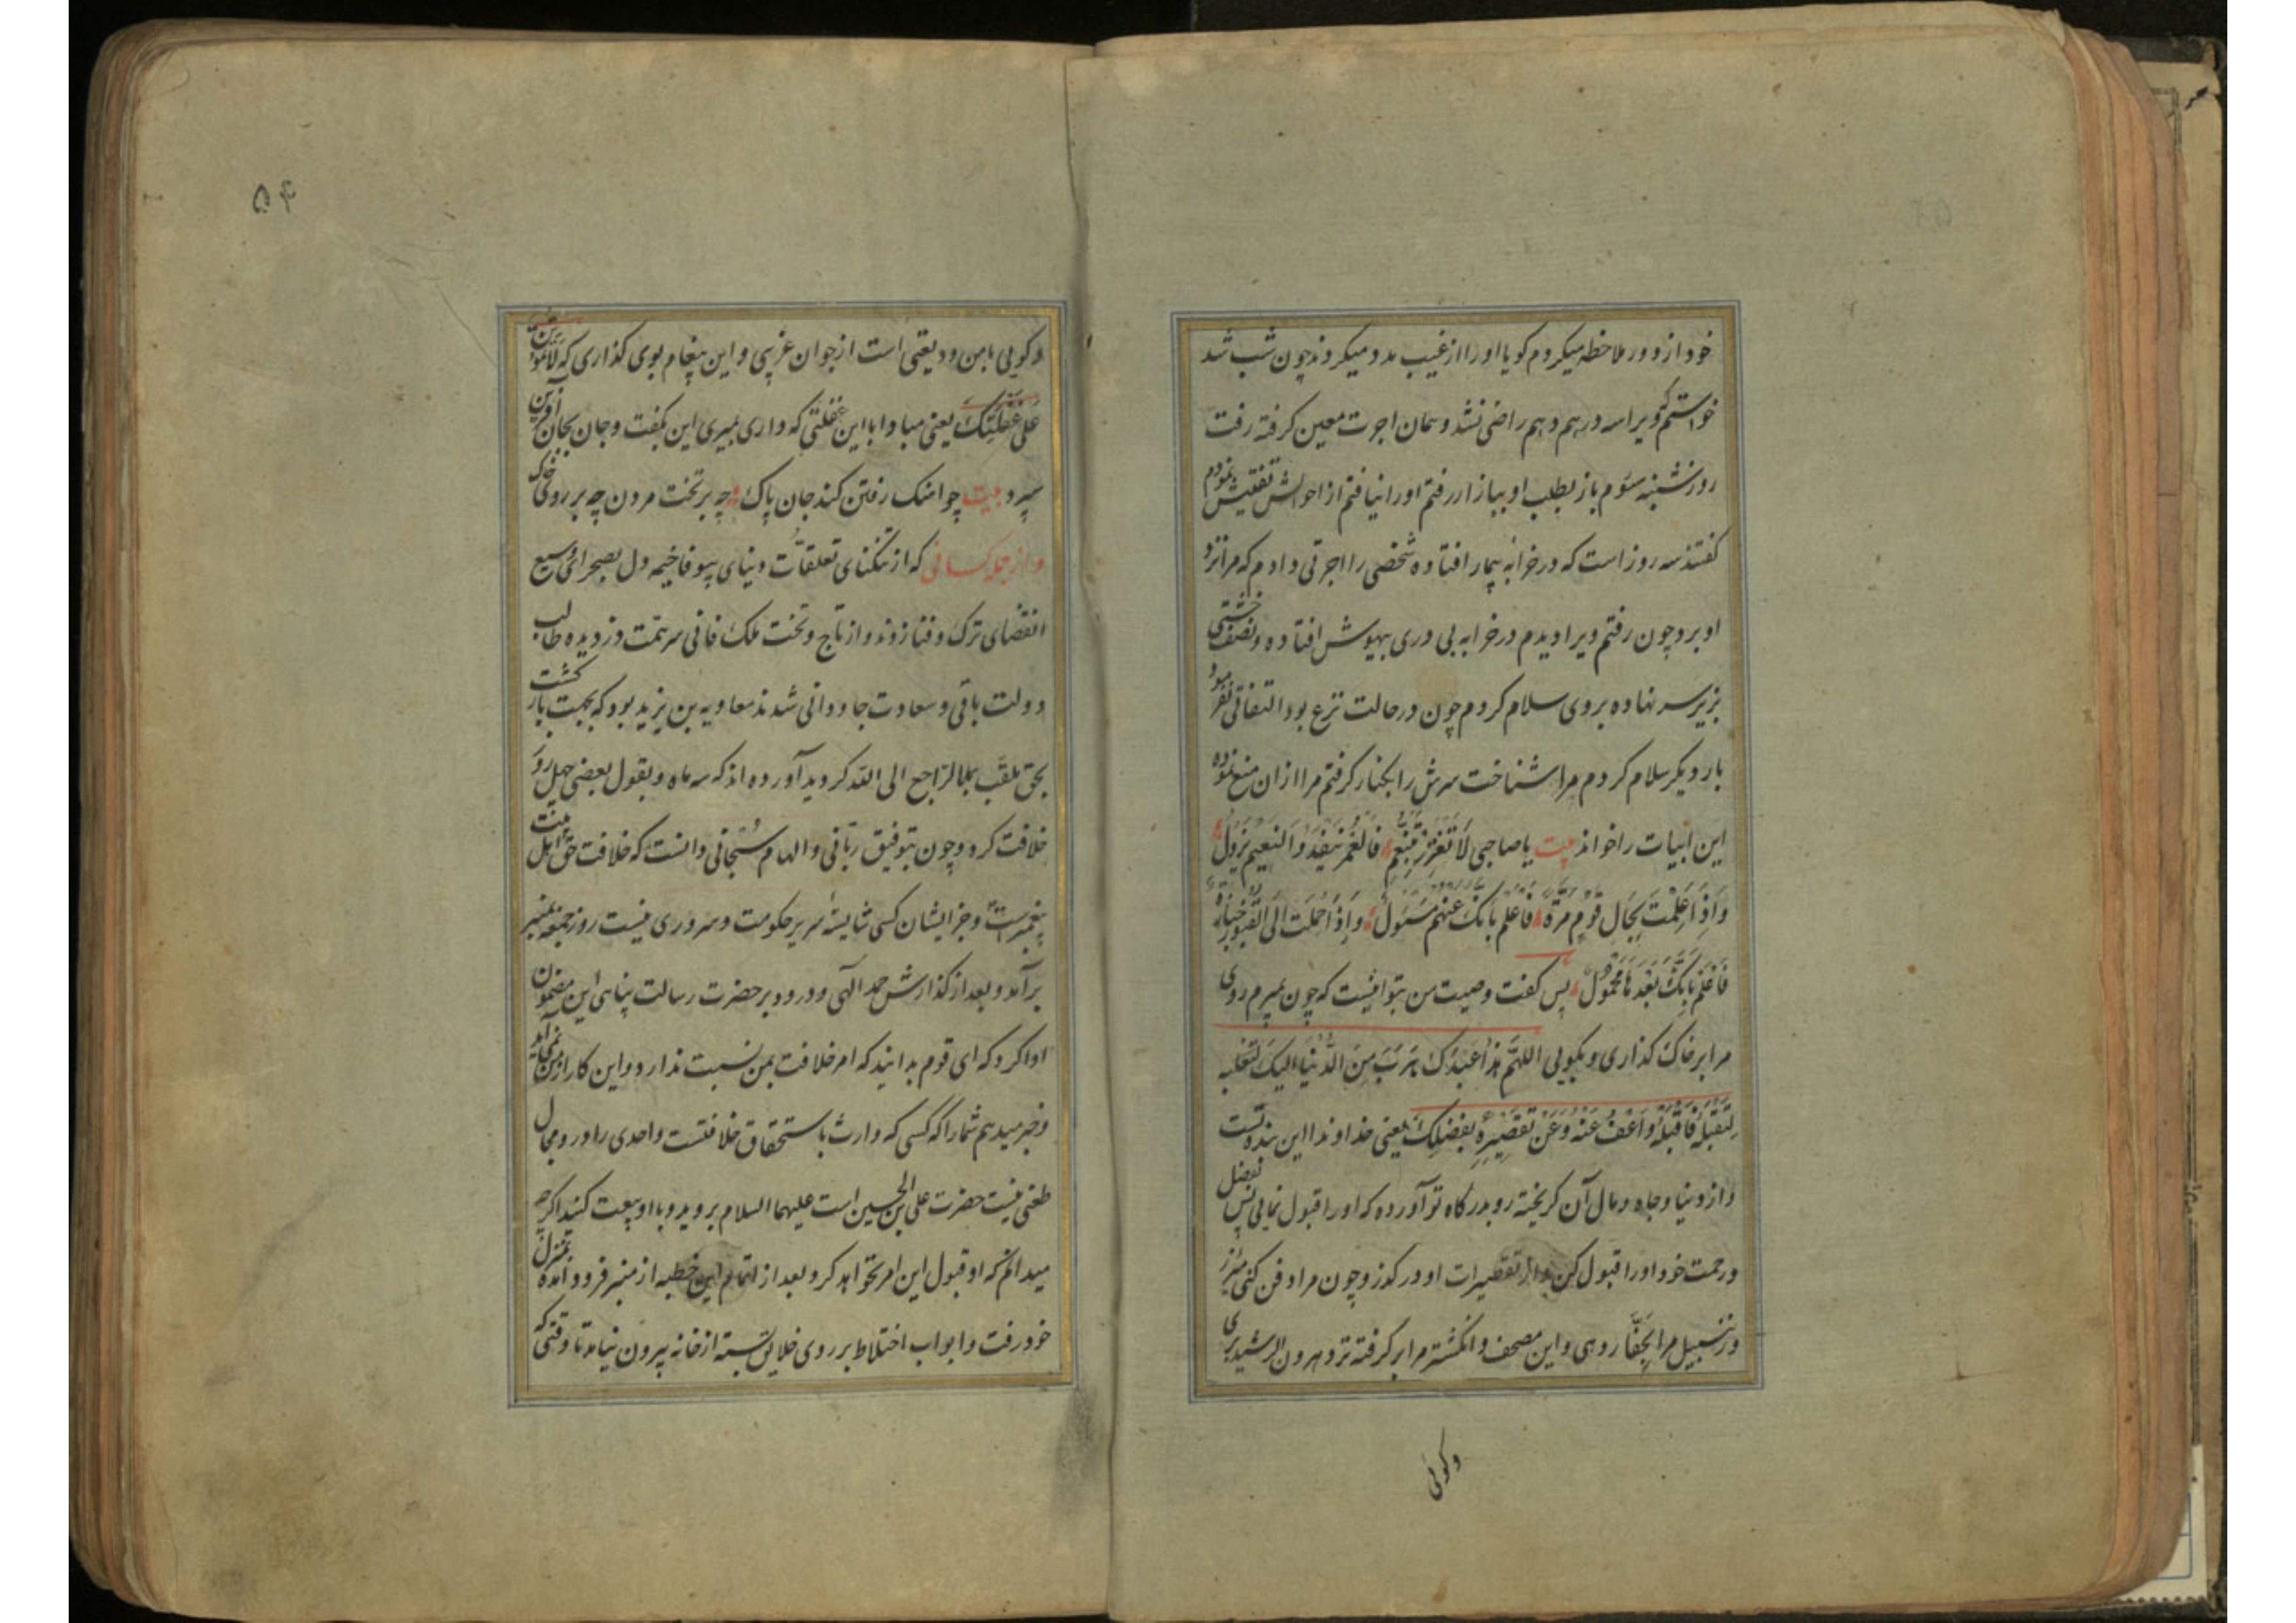 خود از دور ملاحظه میکردم کویا اورا از غیب مدد میکردند چون شب شد
خواستم که ویرا سه درهم دهم راضی نشد و همان اجرت معین کرفته رفت
روز شنبه سوم باز بطلب او ببازار رفتم اورا نیافتم از احوالش تفتیش نمودم
کفتند سه روز است که در خرابه بیمار افتاده شخصی را اجرتی دادم که مرا نزد
او برد چون رفتم ویرا دیدم در خرابه بی دری بیهوش افتاده و نصف خشتی
بزیر سر نهاده بروی سلام کردم چون در حالت نزع بود التفاتی نفرمود
بار دیکر سلام کردم مرا شناخت سرش را بکنار کرفتم مرا از ان منع نموده
این ابیات را خواند بیت یا صاحبی لَا تَغْتَرِرْ بِتَنَعُّمٍ فَالْعُمْرُ یَنْفَدُ وَالنَّعِیمُ یَزُولُ
وَاِذَا عَلِمْتَ بِحَالِ قَوْمٍ مَرَّةً فَاعْلَمْ بِاَنَّکَ عَنْهُمْ مَسْئُولُ وَاِذَا حَمَلْتَ اِلَی الْقُبُورِ جَنَازَةً
فَاعْلَمْ بِاَنَّکَ بَعْدَهَا مَحْمُولُ پس کفت وصیت من بتو اینست که چون بمیرم روی
مرا بر خاک کذاری و بکویی اللهم هذا عَبْدُکَ هَرَبَ مِنَ الدُّنْیَا اِلَیکَ
لِتَقْبَلَهُ فَاقْبَلْهُ وَاعْفُ عَنْهُ وَعَنْ تَقْصِیرِهِ بِفَضْلِکَ یعنی خداوندا این بنده تست
و از دنیا و جاه و مال آن کریخته رو بدرکاه تو آورده که اورا قبول نمایی پس بفضل
و رحمت خود اورا قبول کن و از تقصیرات او در کذر و چون مرا دفن کنی
و زنبیل مرا بحفّار دهی و این مصحف و انکشتر مرا بر کرفته نزد هرون الرشید بری
و کویی
۵۴
و کویی با من ودیعتی است از جوان غریبی و این پیغام بوی کذاری که لَا تَمُوتَنَّ
عَلَی غَفْلَتِکَ یعنی مبادا با این غفلتی که داری بمیری این بکفت و جان بجان آفرین
سپرد بیت چو اهنک رفتن کند جان پاک چه بر تخت مردن چه بر روی خاک
و از جمله کسانی که از تنکنای تعلقات دنیای بیوفا خیمه دل بصحرای وسیع
انقضای ترک و فنا زدند و از تاج و تخت ملک فانی سر همّت دزدیده طالب
دولت باقی و سعادت جاودانی شدند معاویه بن یزید بود که بجهت باز کشت
بحق ملقّب بالراجع الی الله کردید آورده اند که سه ماه و بقول بعضی چهل روز
خلافت کرد و چون بتوفیق ربّانی و الهام سُبحانی دانست که خلافت حق اهل بیت
پیغمبر است و جز ایشان کسی شایسته سریر حکومت و سروری نیست روز جمعه بمنبر
برآمد و بعد از کذارش حمد الهی و درود بر حضرت رسالت پناهی این مضمون
ادا کرد که ای قوم بدانید که امر خلافت بمن نسبت ندارد و این کار از من نمی آید
و خبر میدهم شما را که کسی که وارث باستحقاق خلافتست و احدی را در و مجال
طعنی نیست حضرت علی بن الحسین است علیهما السلام بروید و با او بیعت کنید اکر چه
میدانم که او قبول این امر نخواهد کرد و بعد از اتمام این خطبه از منبر فرود آمده بمنزل
خود رفت و ابواب اختلاط بر روی خلایق بسته از خانه بیرون نیامد تا وقتی که